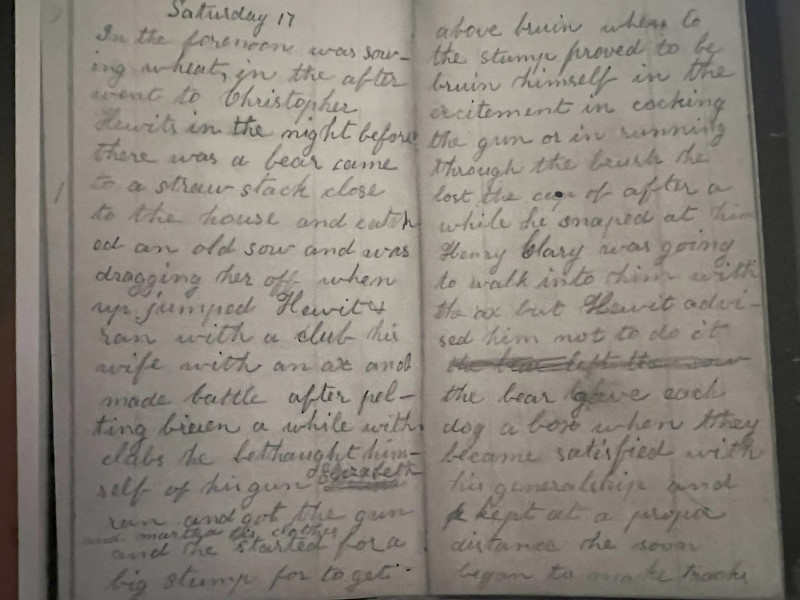 Saturday 17
In the forenoon was sow-
ing wheat, in the after
went to Christopher
Hewits in the night before
there was a bear came
to a straw stack close
to the house and catch-
ed an old sow and was
dragging her off when
up jumped Hewit &
ran with a club his
wife with an ax and
made battle after pel-
ting bruen a while with
clubs he bethought him-
self of his gun Elizabeth
ran and got the gun
and his clothes
and he started for a
big stump for to get
above bruin when to
the stump proved to be
bruin himself in the
excitement in cocking
the gun or in running
through the brush he
lost the cap of after a
while he snaped at him
Henry Clary was going
to walk into him with
the ax but Hewit advi-
sed him not to do it
the bear left the sow
the bear gave each
dog a box when they
became satisfied with
his generalship and
kept at a proper
distance he soon
began to make tracks